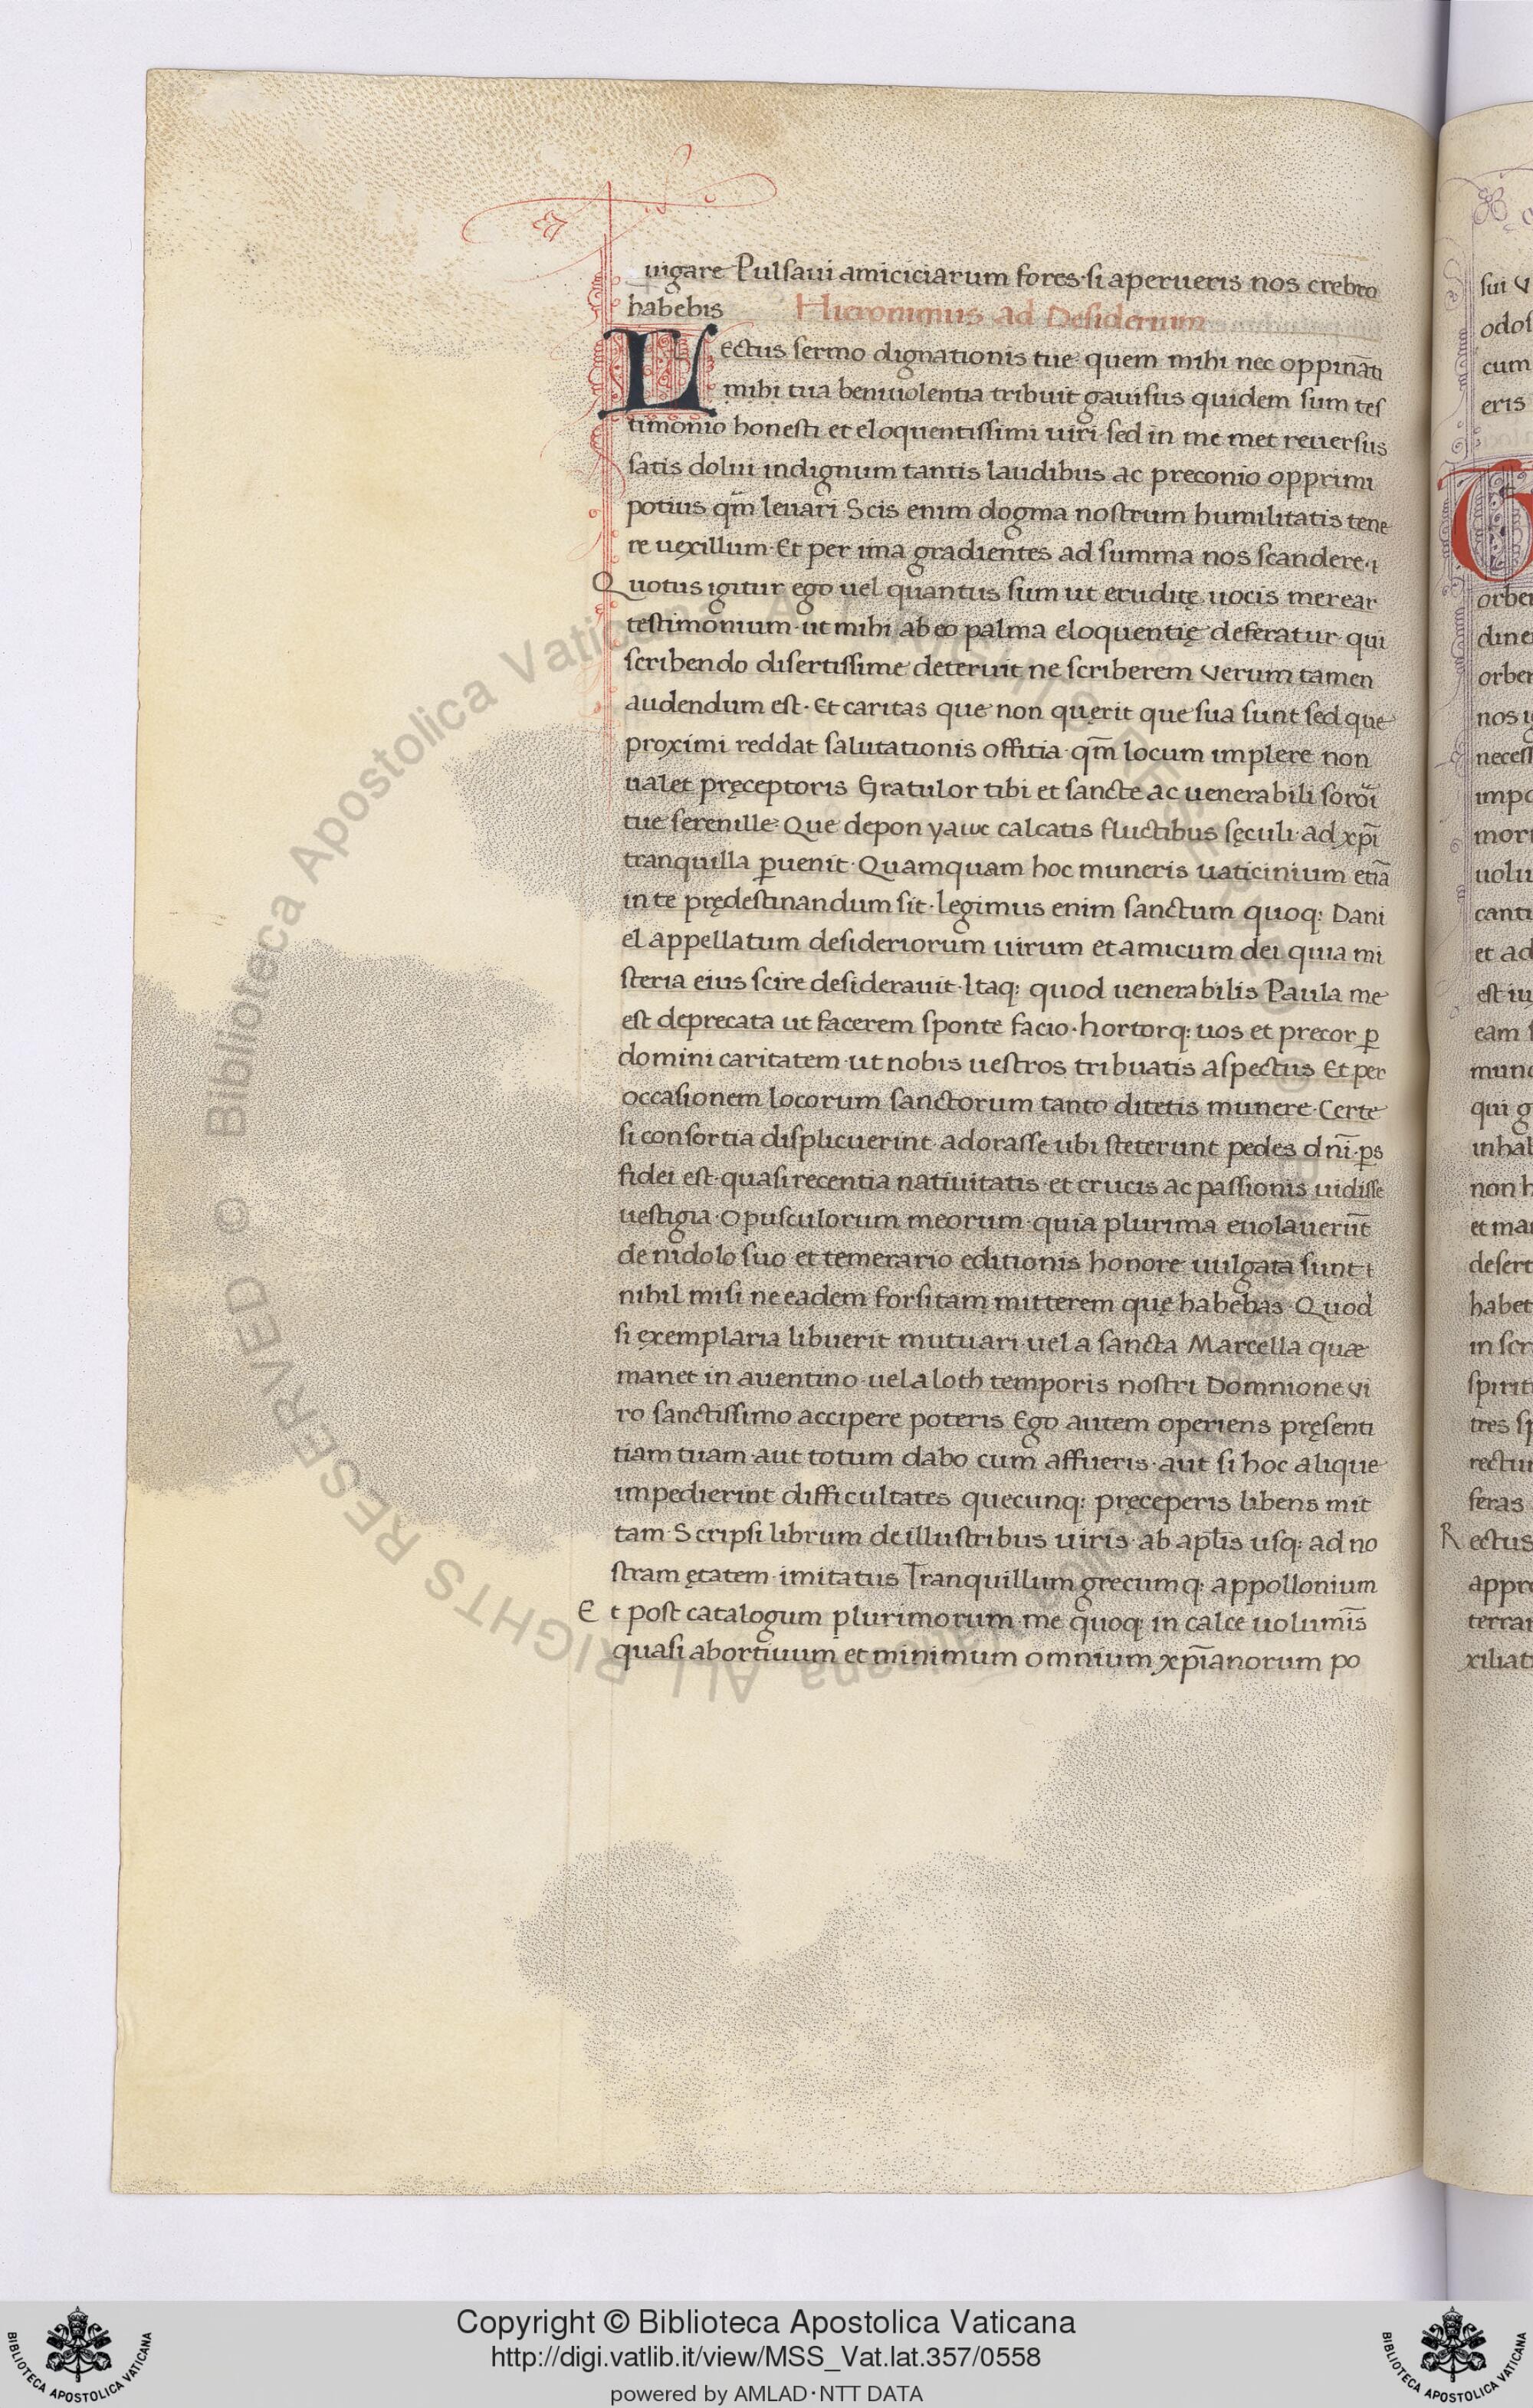 uigare Pulsaui amiciciarum fores·si aperueris nos crebro
habebis Hieronimus ad Desiderium
Lectus sermo dignationis tue quem mihi nec oppināti
mihi tua beniuolentia tribuit gauisus quidem sum tes
timonio honesti et eloquentissimi uiri·sed in me met reuersus
satis dolui indignum tantis laudibus ac preconio opprimi
potius qm̄ leuari·Scis enim dogma nostrum humilitatis tene
re uexillum·Et per ima gradientes ad summa nos scandere·
Quotus igitur ego uel quantus sum ut eruditę uocis merear
testimonium·ut mihi ab eo palma eloquentię deferatur qui
scribendo disertissime deteruit ne scriberem Verum tamen
audendum est·Et caritas que non quęrit que sua sunt sed que
proximi reddat salutationis offitia·qm̄ locum implere non
ualet pręceptoris Gratulor tibi et sancte ac uenerabili sorori
tue serenille·Que calcatis fluctibus sęculi·ad xp̄i
tranquilla ꝑuenit·Quamquam hoc muneris uaticinium etiā
in te prędestinandum sit·legimus enim sanctum quoq: Dani
el appellatum desideriorum uirum et amicum dei quia mi
steria eius scire desiderauit·Itaq: quod uenerabilis Paula me
est deprecata ut facerem sponte facio·hortorq: uos et precor ꝑ
domini caritatem·ut nobis uestros tribuatis aspectus Et per
occasionem locorum sanctorum tanto ditetis munere·Certe
si consortia displicuerint·adorasse ubi steterunt pedes dn̄i·ꝑs
fidei est·quasi recentia natiuitatis·et crucis ac passionis uidisse
uestigia·Opusculorum meorum·quia plurima euolauerūt
de nidolo suo et temerario editionis honore uulgata sunt
nihil misi ne eadem forsitam mitterem quę habebas·Quod
si exemplaria libuerit mutuari·uel a sancta Marcella quæ
manet in auentino·uel a loth temporis nostri Domnione vi
ro sanctissimo accipere poteris Ego autem operiens pręsenti
tiam tuam·aut totum dabo cum affueris·aut si hoc alique
impedierint difficultates quecunq: pręceperis libens mit
tam·Scripsi librum de illustribus uiris·ab apl̄is usq: ad no
stram ętatem·imitatus Tranquillum grecumq: appollonium
Et post catalogum plurimorum·me quoq: in calce uolumīs
quasi abortiuum et minimum omnium xp̄ianorum po
sui
odos
cum
eris
orber
dine
orber
nos
necess
impo
mor
uolu
cant
et ad
est iu
eam
mund
qui g
inhab
non h
et ma
desert
habet
in scr
spirit
tres sp
rectu
feras
Rectus
appr
terra
xiliat
Biblioteca Apostolica Vaticana ALL RIGHTS RESERVED ©
Copyright © Biblioteca Apostolica Vaticana
http://digi.vatlib.it/view/MSS_Vat.lat.357/0558
powered by AMLAD·NTT DATA
BIBLIOTECA APOSTOLICA VATICANA
BIBLIOTECA APOSTOLICA VATICANA